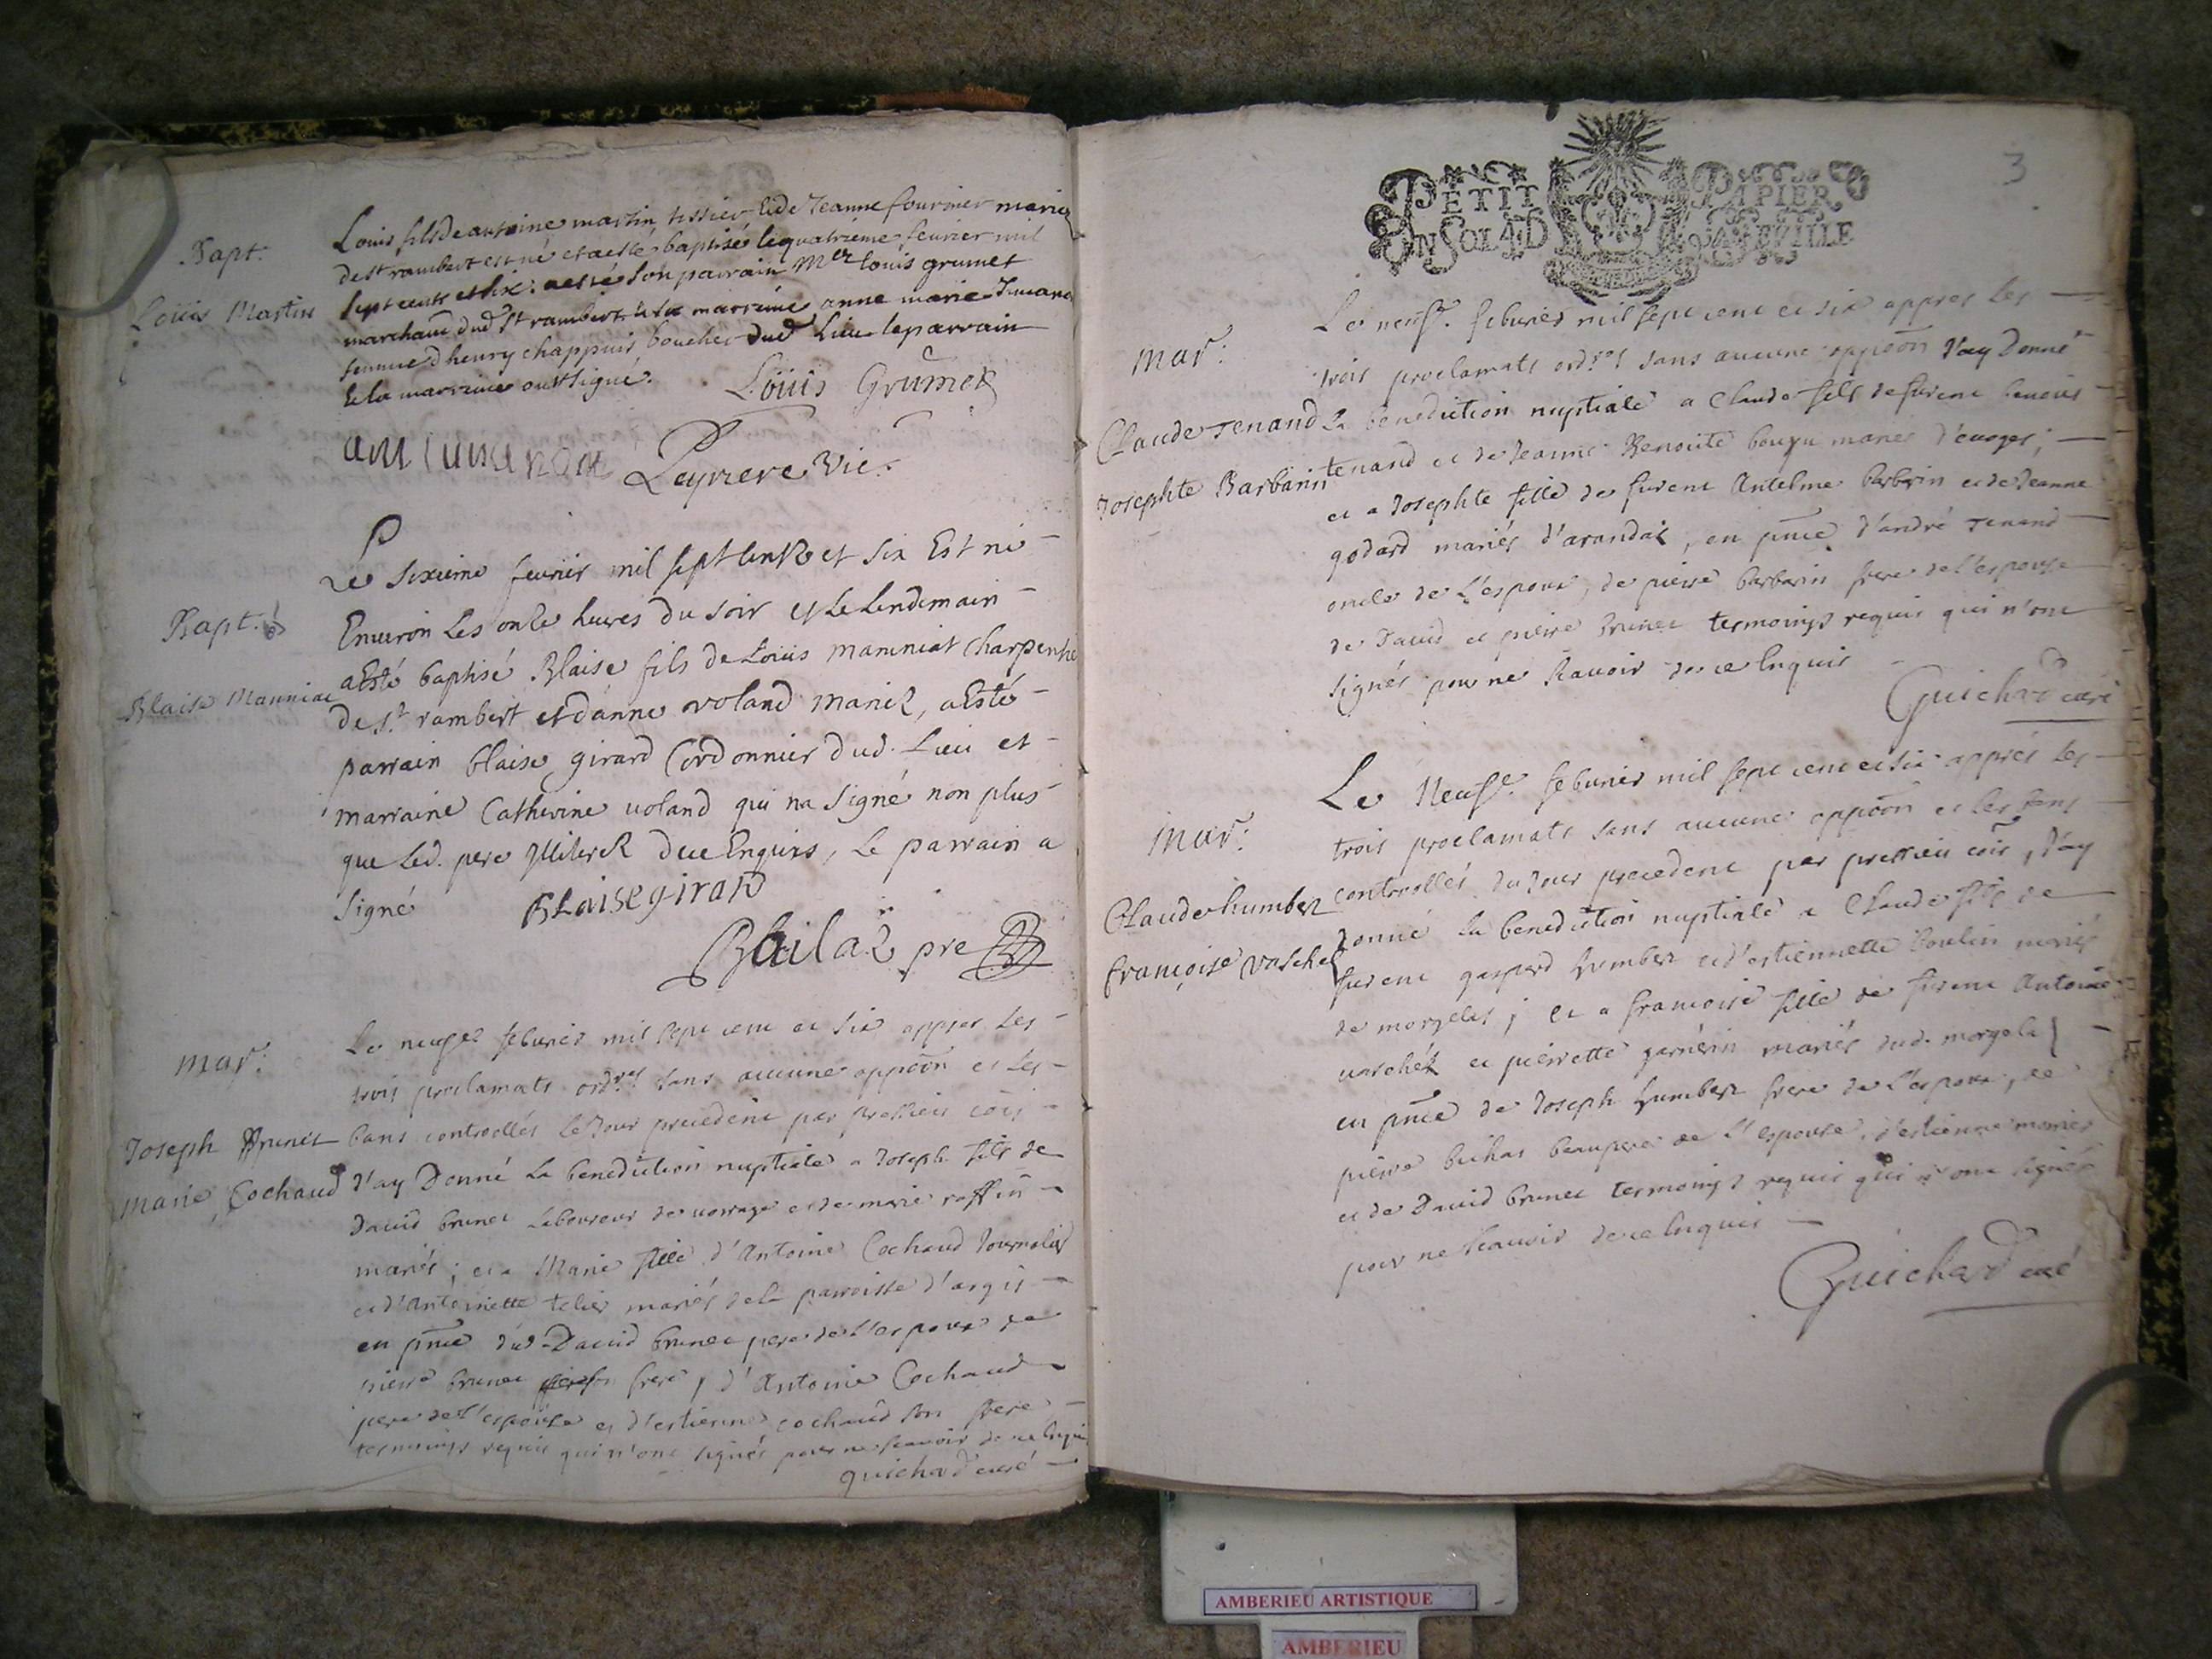 Bapt.
Loüis Martin
Louis fils de antoine martin tissier & de Jeanne fournier mariez
de st rambert est né et a esté baptisé le quatrieme fevrier mil
sept cents et six: a esté son parrain Mer louis grumet
marchand dud st rambert & sa marreine anne marie
femme d henry chappuis boucher dud lieu le parrain
& la marreine ont signé.
Loüis Grumet
Leyrere vic.
Bapt.
Blaise Manniat
Le sixieme fevrier mil sept cents et six Est né
Environ les onze heures du soir et le lendemain
a Esté baptisé Blaise fils de Loüis manniat Charpentie
de st rambert et d'anne voland mariez, a Esté
parrain blaise girard Cordonnier dud. Lieu et
marraine Catherine voland qui na signé non plus
que led. pere Illiterez de ce Enquis, Le parrain a
signé
BLaise girard
Bailaz pre
mar:
Joseph Brunet
Marie Cochaud
Le neufe feburier mil sept cent et six appres les
trois proclamats ordres sans aucune oppoôn et les
bans controllés le Jour precedent par pressieu côis
J'ay Donné la benediction nuptiale a Joseph fils de
David brunet laboureur de vorage et de marie roffin
mariés; et a Marie fille d'Antoine Cochaud Journalier
et d'Antoinette telier mariés de la parroisse d'argis
en pñce dud David brunet pere de l'espoux de
pierre brunet son frere, d'Antoine Cochaud
pere de l'espouse et d'estienne cochaud son frere
temoings requis qui n'ont signés pour ne scavoir de ce Enquis
guichard curé
3
PETIT PAPIER
UN SOL 4 D LA FEUILLE
mar:
Claude Tenand
Josephte Barbarin
Le neufe. feburier mil sept cent et six appres les
trois proclamats ordres sans aucune oppoôn J'ay Donné
La benediction nuptiale a Claude fils de furent benoist
tenand et de Jeanne Benoite bouzu mariés d'evoges;
et a Josephte fille de furent Antelme barbarin et de Jeanne
godard mariés d'arandaz, en pñce d'andré Tenand
oncle de L'espoux, de pierre barbarin frere de l'espouse
de David et pierre brunet temoings requis qui n'ont
signés pour ne scavoir de ce Enquis
Guichard curé
mar:
Claude humber
françoise vaschez
Le Neufe. feburier mil sept cent et six apprés les
trois proclamats sans aucune oppoôn et les bans
controllés du Jour precedent par pressieu côis, J'ay
Donné la benediction nuptiale a Claude fils de
furent gaspard humber et d'estiennette boulin mariés
de morgelas; et a françoise fille de furent Antoine
vaschéz et pierrette garnerin mariés dud. morgela
en pñce de Joseph humber frere de L'espoux, de
pierre buihas beaupere de l'espouse, d'estienne
et de David brunet temoings requis qui n'ont signés
pour ne scavoir de ce Enquis
Guichard curé
AMBERIEU ARTISTIQUE
AMBERIEU